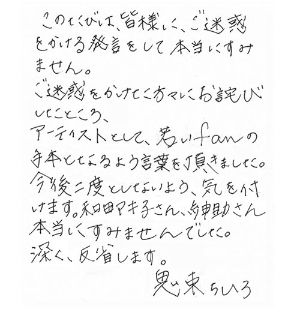 このたびは、皆様に、ご迷惑
をかける発言をして本当にすみ
ません。
ご迷惑をかけた方々にお詫び
したところ、
アーティストとして、若いfanの
手本となるよう言葉を頂きました。
今後二度としないよう、気を付
けます。和田アキ子さん、紳助さん
本当にすみませんでした。
深く、反省します。
ちひろ